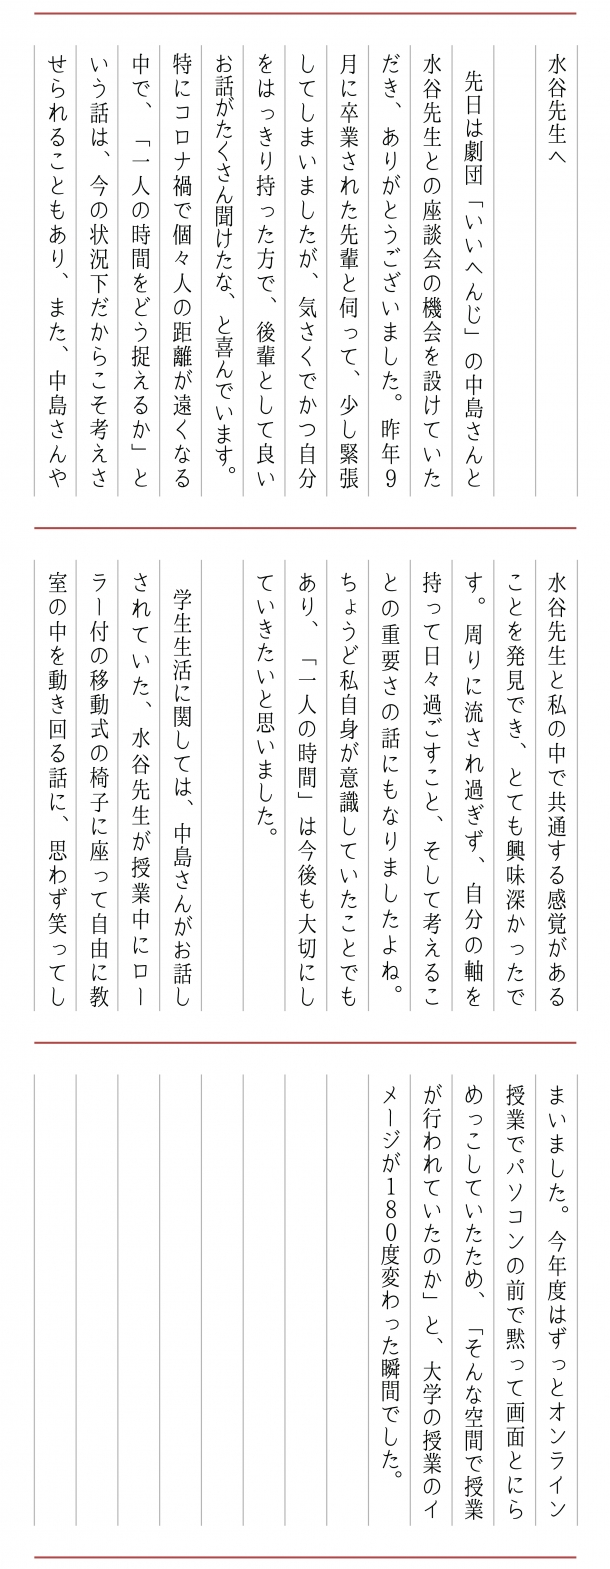 水谷先生へ
先日は劇団「いいへんじ」の中島さんと
水谷先生との座談会の機会を設けていた
だき、ありがとうございました。昨年９
月に卒業された先輩と伺って、少し緊張
してしまいましたが、気さくでかつ自分
をはっきり持った方で、後輩として良い
お話がたくさん聞けたな、と喜んでいます。
特にコロナ禍で個々人の距離が遠くなる
中で、「一人の時間をどう捉えるか」と
いう話は、今の状況下だからこそ考えさ
せられることもあり、また、中島さんや
水谷先生と私の中で共通する感覚がある
ことを発見でき、とても興味深かったで
す。周りに流され過ぎず、自分の軸を
持って日々過ごすこと、そして考えるこ
との重要さの話にもなりましたよね。
ちょうど私自身が意識していたことでも
あり、「一人の時間」は今後も大切にし
ていきたいと思いました。
学生生活に関しては、中島さんがお話し
されていた、水谷先生が授業中にロー
ラー付の移動式の椅子に座って自由に教
室の中を動き回る話に、思わず笑ってし
まいました。今年度はずっとオンライン
授業でパソコンの前で黙って画面とにら
めっこしていたため、「そんな空間で授業
が行われていたのか」と、大学の授業のイ
メージが１８０度変わった瞬間でした。